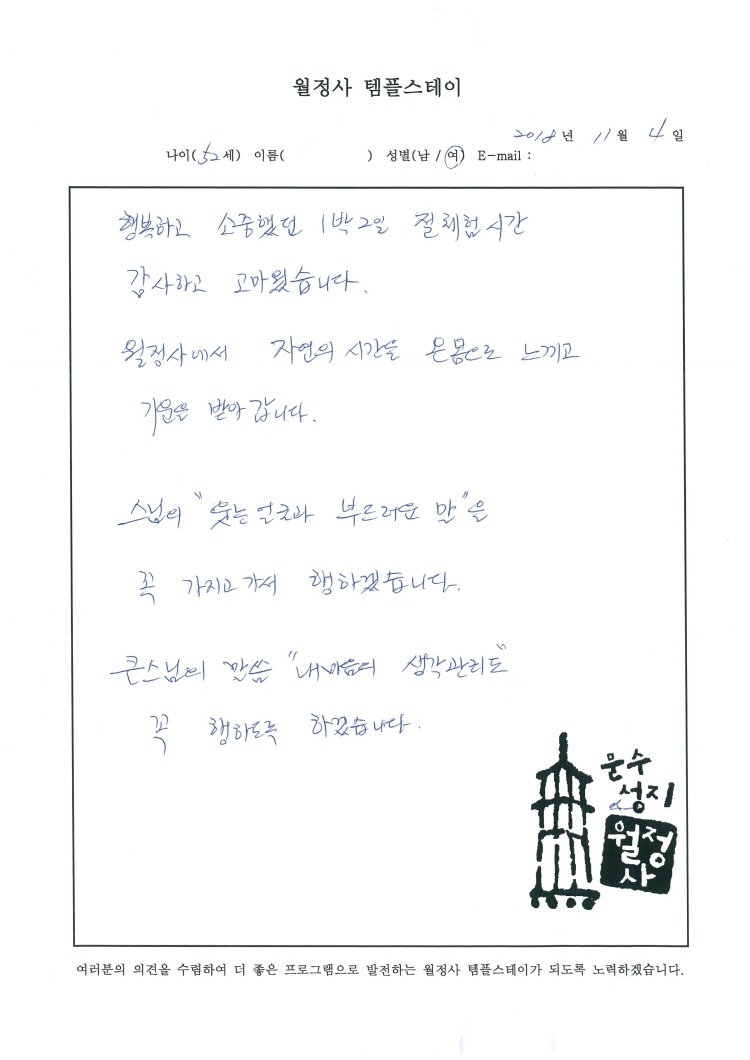 월정사 템플스테이
2018년 11월 4일
나이(52세) 이름( ) 성별(남 / 여) E-mail :
행복하고 소중했던 1박2일 절체험시간
감사하고 고마웠습니다.
월정사에서 자연의 시간을 온몸으로 느끼고
기운을 받아 갑니다.
스님의 "웃는 얼굴과 부드러운 말"을
꼭 가지고 가서 행하겠습니다.
큰스님의 말씀 "내마음의 생각관리도"
꼭 행하도록 하겠습니다.
문수
성지
월정
사
여러분의 의견을 수렴하여 더 좋은 프로그램으로 발전하는 월정사 템플스테이가 되도록 노력하겠습니다.